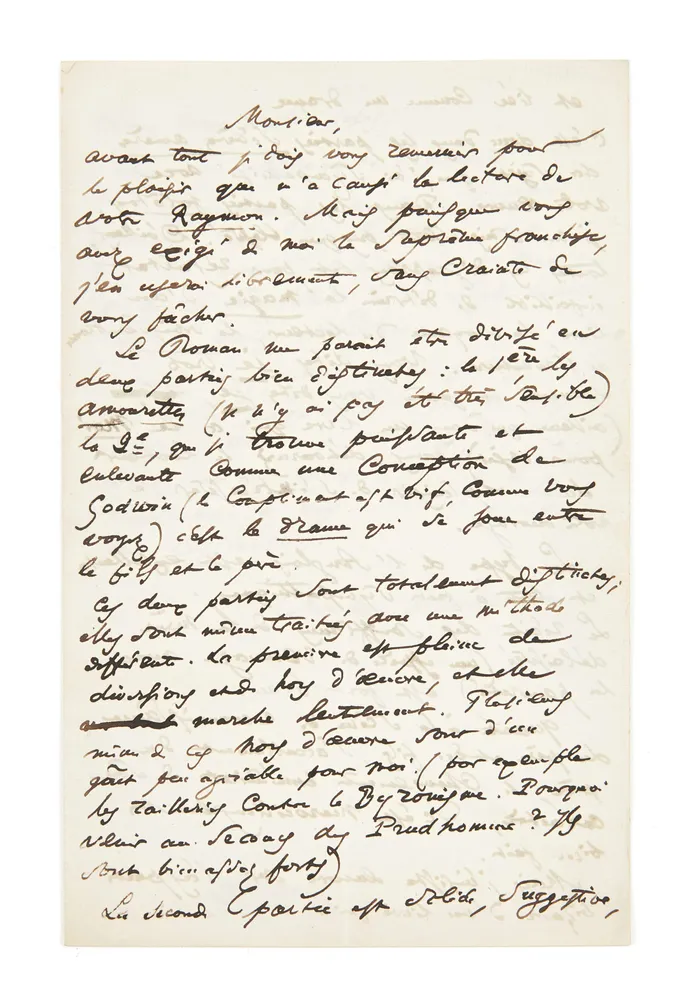 Monsieur,
avant tout je dois vous remercier pour
le plaisir que m'a causé la lecture de
votre Raymon. Mais puisque vous
avez exigé de moi la suprême franchise,
j'en userai librement, sans crainte de
vous fâcher.
Le Roman me parait être divisé en
deux parties bien distinctes : la 1ère les
amourettes (je n'y ai pas été très sensible)
la 2e, que je trouve puissante et
enlevante comme une Conception de
Godwin (le compliment est vif, comme vous
voyez) c'est le drame qui se joue entre
le fils et le père.
Ces deux parties sont totalement distinctes;
elles sont même traitées avec une méthode
différente. La première est pleine de
diversions et de hors d'œuvre, et elle
marche lentement. Plusieurs
même de ces hors d'œuvre sont d'un
goût peu agréable pour moi. (par exemple
les railleries contre le Byronisme. Pourquoi
venir au secours des Prudhomme? Ils
sont bien assez forts)
La seconde partie est solide, suggestive,